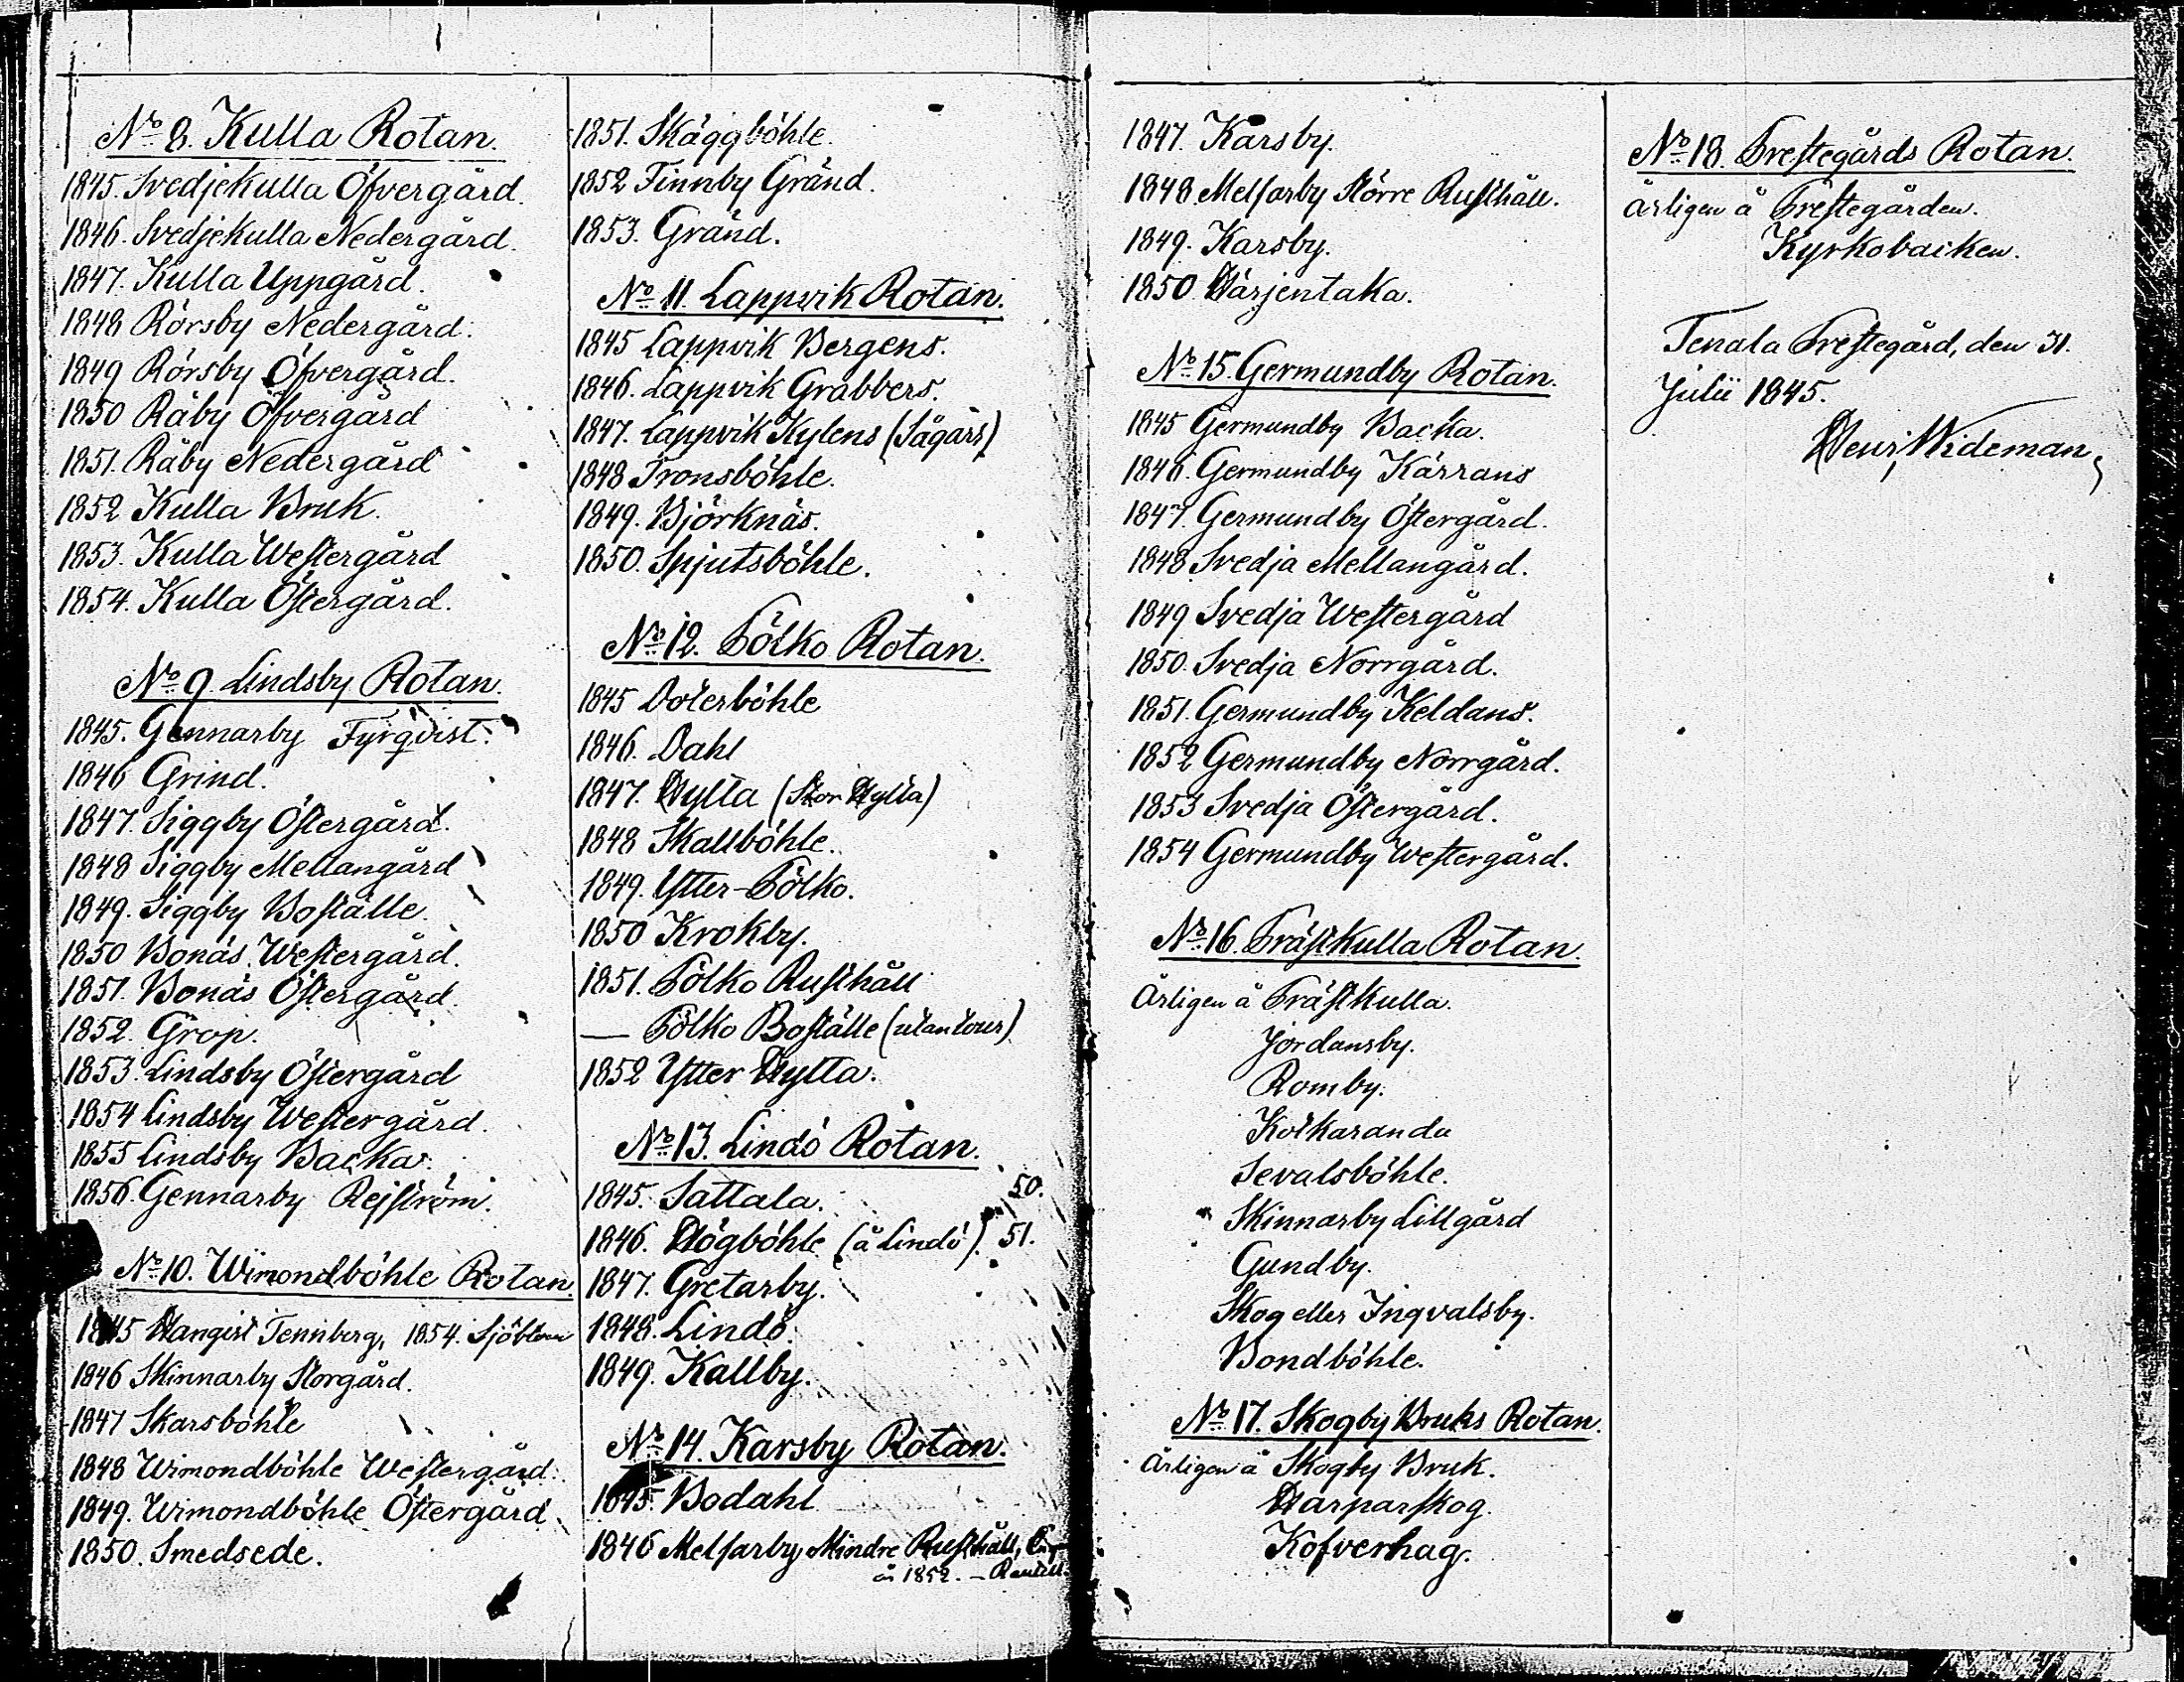 No 8. Kulla Rotan.
1845. Svedjekulla Öfvergård.
1846. Svedjekulla Nedergård.
1847. Kulla Uppgård.
1848 Rörsby Nedergård.
1849 Rörsby Öfvergård.
1850 Råby Öfvergård
1851. Råby Nedergård
1852 Kulla Bruk.
1853. Kulla Westergård
1854. Kulla Östergård.
No 9. Lindsby Rotan.
1845. Gennarby Fyrqvist.
1846 Grind.
1847. Siggby Östergård.
1848 Siggby Mellangård
1849. Siggby Boställe.
1850 Bonäs Westergård.
1851. Bonäs Östergård.
1852. Grop.
1853. Lindsby Östergård
1854 Lindsby Westergård.
1855 Lindsby Backa.
1856. Gennarby Rejström.
No 10. Wimondböhle Rotan.
1845 Hangist Tennberg, 1854. Sjöblom
1846 Skinnarby Storgård.
1847 Skarsböhle
1848 Wimondböhle Westergård.
1849. Wimondböhle Östergård
1850. Smedsede.
1851. Skäggböhle.
1852 Finnby Gränd.
1853. Gränd.
No 11. Lappvik Rotan.
1845 Lappvik Bergens.
1846. Lappvik Grabbers.
1847. Lappvik Kylens (Sågars)
1848 Tronsböhle.
1849. Björknäs.
1850. Spjutsböhle.
No 12. Pölko Rotan.
1845 Dolerböhle
1846. Dahl
1847. Hylta (Stor Hylta)
1848 Skallböhle.
1849. Ytter-Pölko.
1850 Krokby.
1851. Pölko Rusthåll
— Pölko Boställe (utan tour)
1852 Ytter Hylta.
No 13. Lindö Rotan.
1845. Sattala. 50.
1846. Högböhle (å Lindö). 51.
1847. Gretarby.
1848. Lindö.
1849. Kallby.
No 14. Karsby Rotan.
1845. Bodahl
1846 Melsarby Mindre Rusthåll,
år 1852. —
1847. Karsby.
1848. Melsarby Större Rusthåll.
1849. Karsby.
1850. Härjentaka.
No 15. Germundby Rotan.
1845 Germundby Backa.
1846. Germundby Kärrans
1847. Germundby Östergård.
1848 Svedja Mellangård.
1849 Svedja Westergård
1850. Svedja Norrgård.
1851. Germundby Keldans.
1852 Germundby Norrgård.
1853 Svedja Östergård.
1854 Germundby Westergård.
No 16. Prästkulla Rotan.
Årligen å Prästkulla.
Jordansby.
Romby.
Kolkaranda
Sevalsböhle.
Skinnarby Lillgård
Gundby.
Skog eller Ingvalsby.
Bondböhle.
No 17. Skogby Bruks Rotan.
Årligen å Skogby Bruk.
Harparskog.
Kofverhag.
No 18. Prestegårds Rotan.
Årligen å Prestegården.
Kyrkobacken.
Tenala Prestegård, den 31.
Julii 1845.
Henr. Wideman,